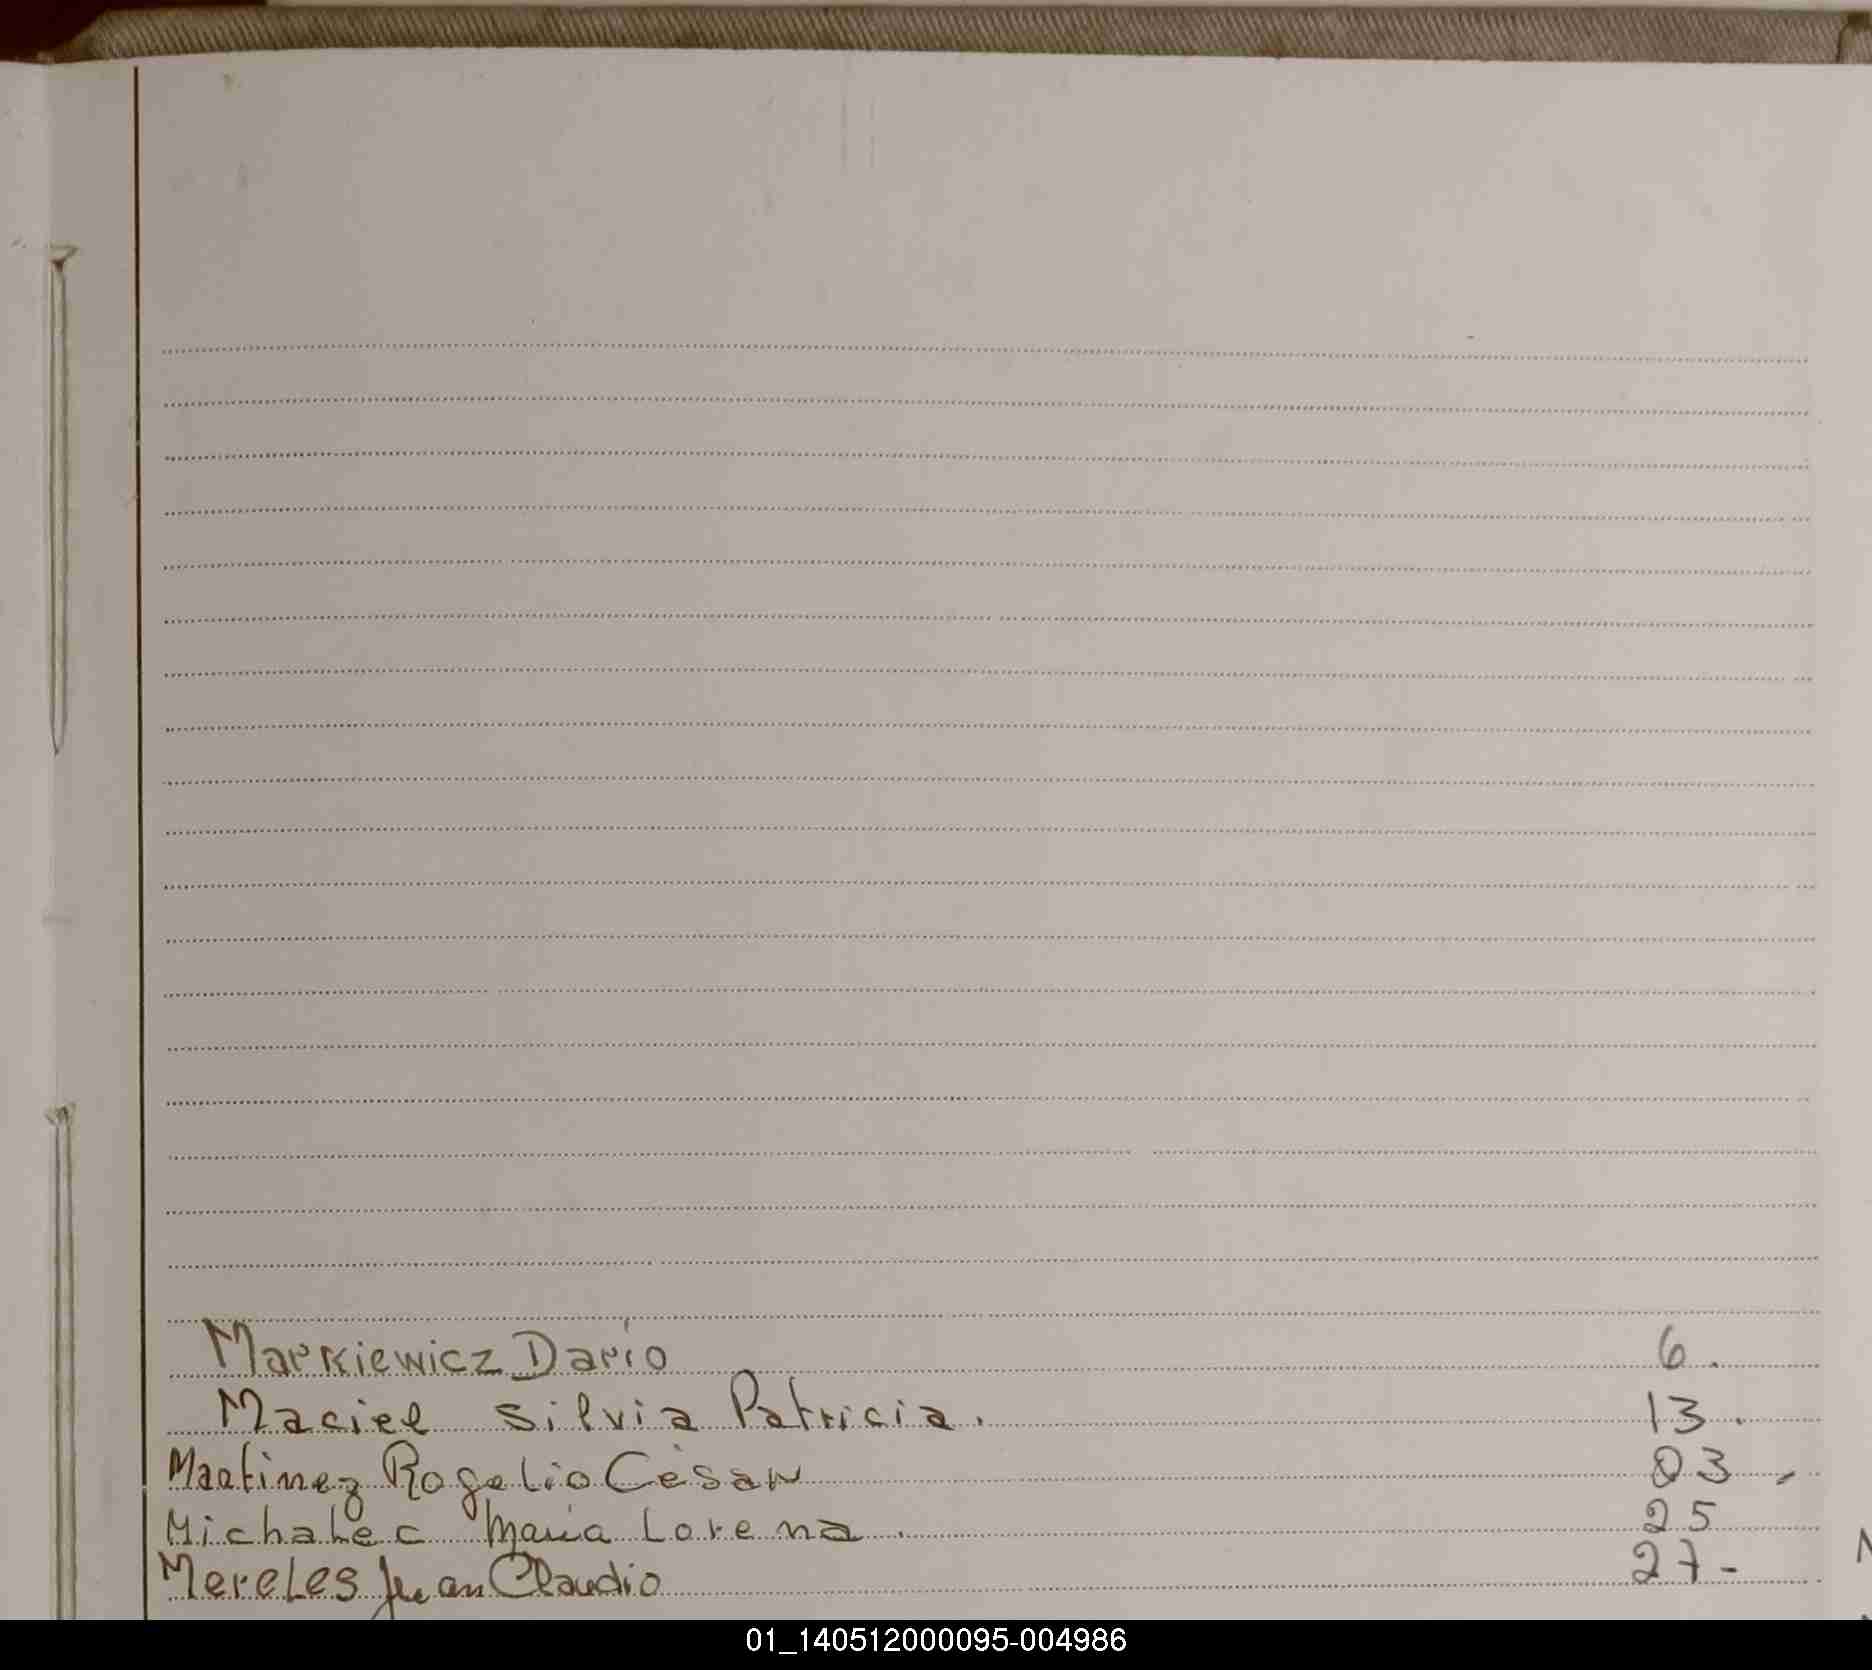 Markiewicz Darío 6.
Maciel Silvia Patricia. 13.
Martinez Rogelio Cèsar 03.
Michalec María Lorena. 25
Mereles Juan Claudio 27-
01_140512000095-004986